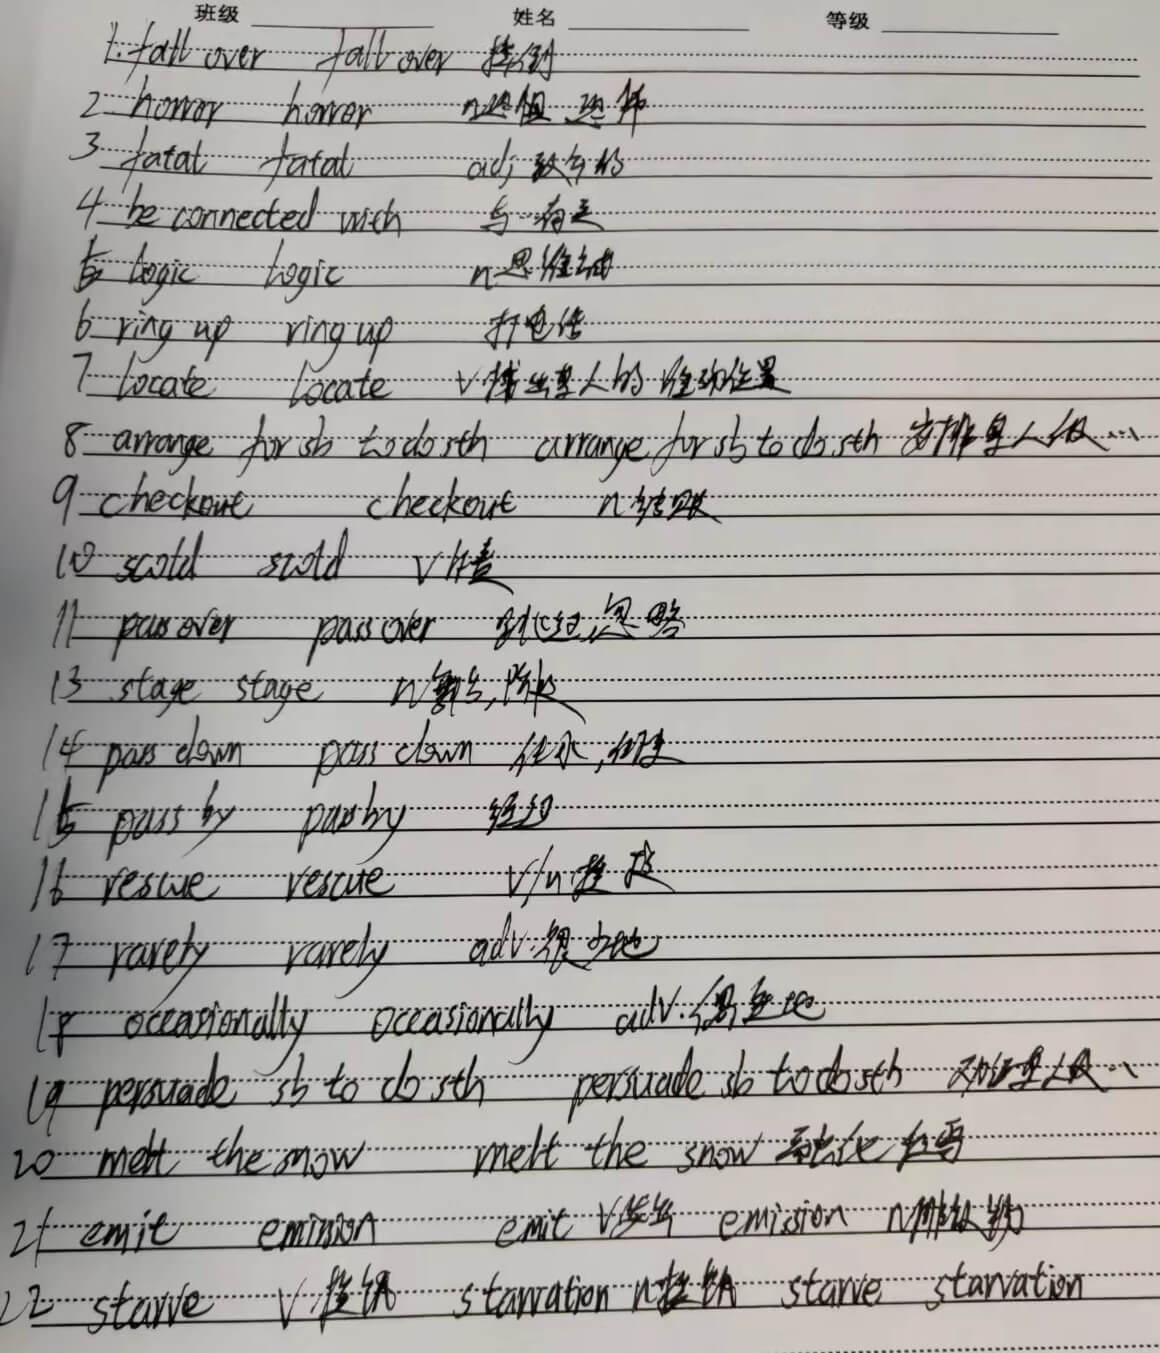 班级 姓名 等级
1. fall over fall over 摔倒
2 horror horror n 恐惧 恐怖
3 fatal fatal adj 致命的
4 be connected with 与…有关
5 logic logic n 思维
6 ring up ring up 打电话
7 locate locate v 某人的 位置
8 arrange for sb to do sth arrange for sb to do sth 安排某人做…
9 checkout checkout n 结账
10 scold scold v 斥责
11 pass over pass over 忽略
13 stage stage n 舞台,阶段
14 pass down pass down 传承,
15 pass by pass by 经过
16 rescue rescue v/n 救
17 rarely rarely adv. 很少地
18 occasionally occasionally adv. 偶尔地
19 persuade sb to do sth persuade sb to do sth 劝说某人做…
20 melt the snow melt the snow 融化 雪
21 emit emission emit v 发出 emission n 排放物
22 starve v 挨饿 starvation n 挨饿 starve starvation